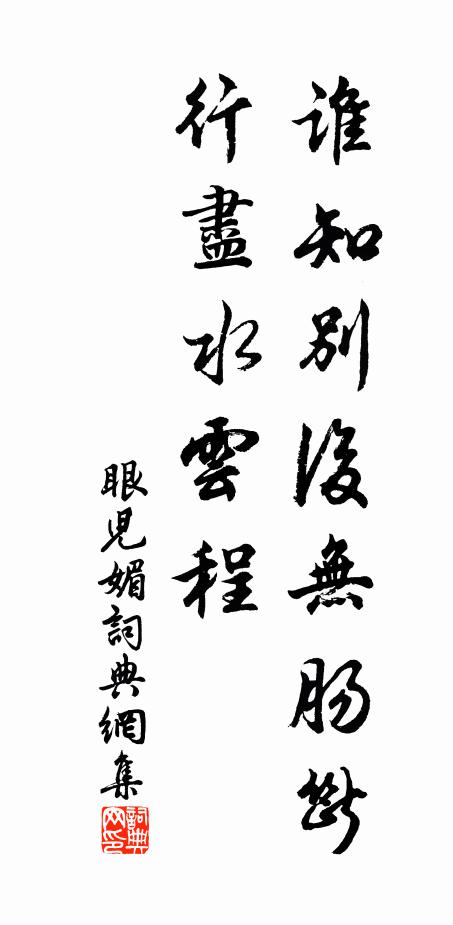 誰知別後無肠斷
行盡水雲程
眼兒媚詞典網集
詞典网印